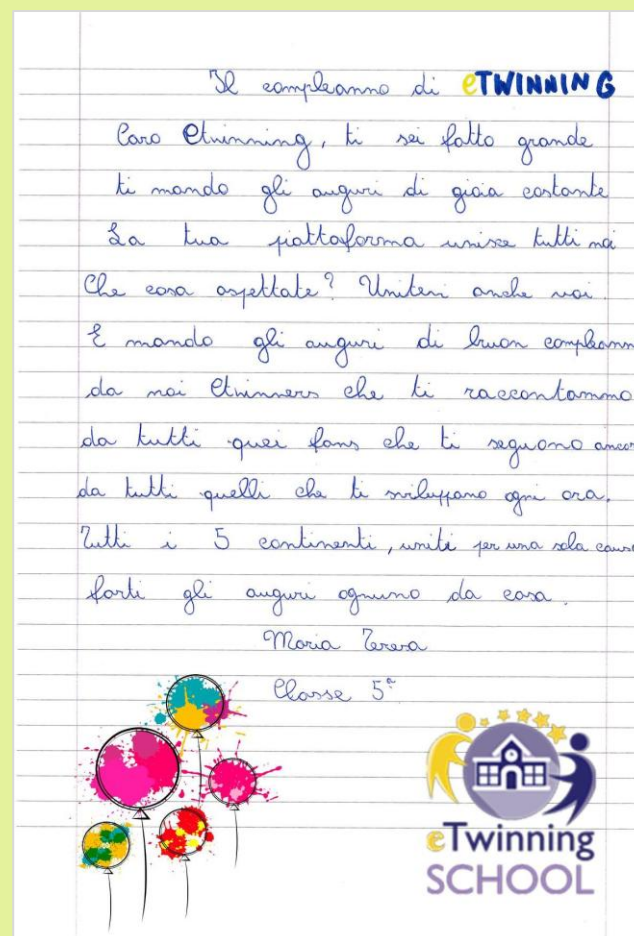 Il compleanno di eTWINNING
Caro Etwinning, ti sei fatto grande
ti mando gli auguri di gioia costante
La tua piattaforma unisce tutti noi
Che cosa aspettate? Unitevi anche voi.
E mando gli auguri di buon compleann
da noi Etwinners che ti raccontammo
da tutti quei fans che ti seguono ancor
da tutti quelli che ti sviluppano ogni ora.
Tutti i 5 continenti, uniti per una sola caus
forti gli auguri ognuno da casa.
Maria Teresa
Classe 5ª
eTwinning
SCHOOL